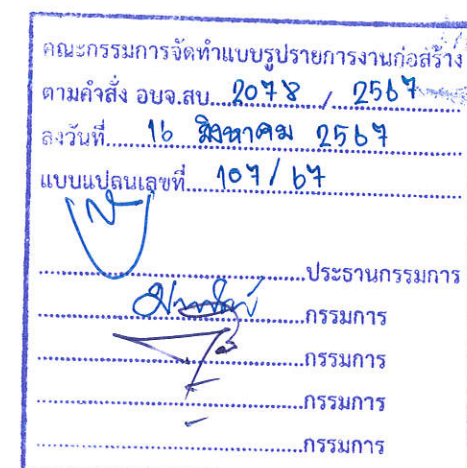 คณะกรรมการจัดทำแบบรูปรายการงานก่อสร้าง
ตามคำสั่ง อบจ.สบ. 2078 / 2567
ลงวันที่ 16 สิงหาคม 2567
แบบแปลนเลขที่ 107/67
ประธานกรรมการ
กรรมการ
กรรมการ
กรรมการ
กรรมการ